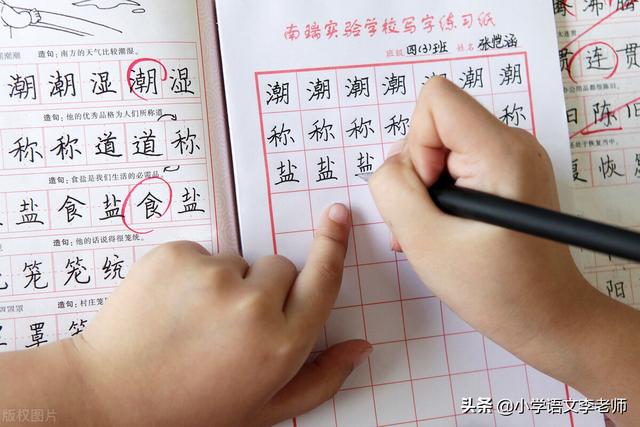 造句：南方的天气比较潮湿。
潮潮湿潮湿
造句：他的优秀品格为人们所称道
称称道道称
造句：食盐是我们生活的必需品
盐食盐食盐
造句：他的话说得很笼统。
笼笼统
造句：村庄笼
罩
南瑞实验学校写字练习纸
班级 四(3)班 姓名 张恺涵
潮潮潮潮潮潮潮
称称称称称
盐盐盐
沸
连贯
陈
恢
阳
版权图片
头条 @小学语文李老师